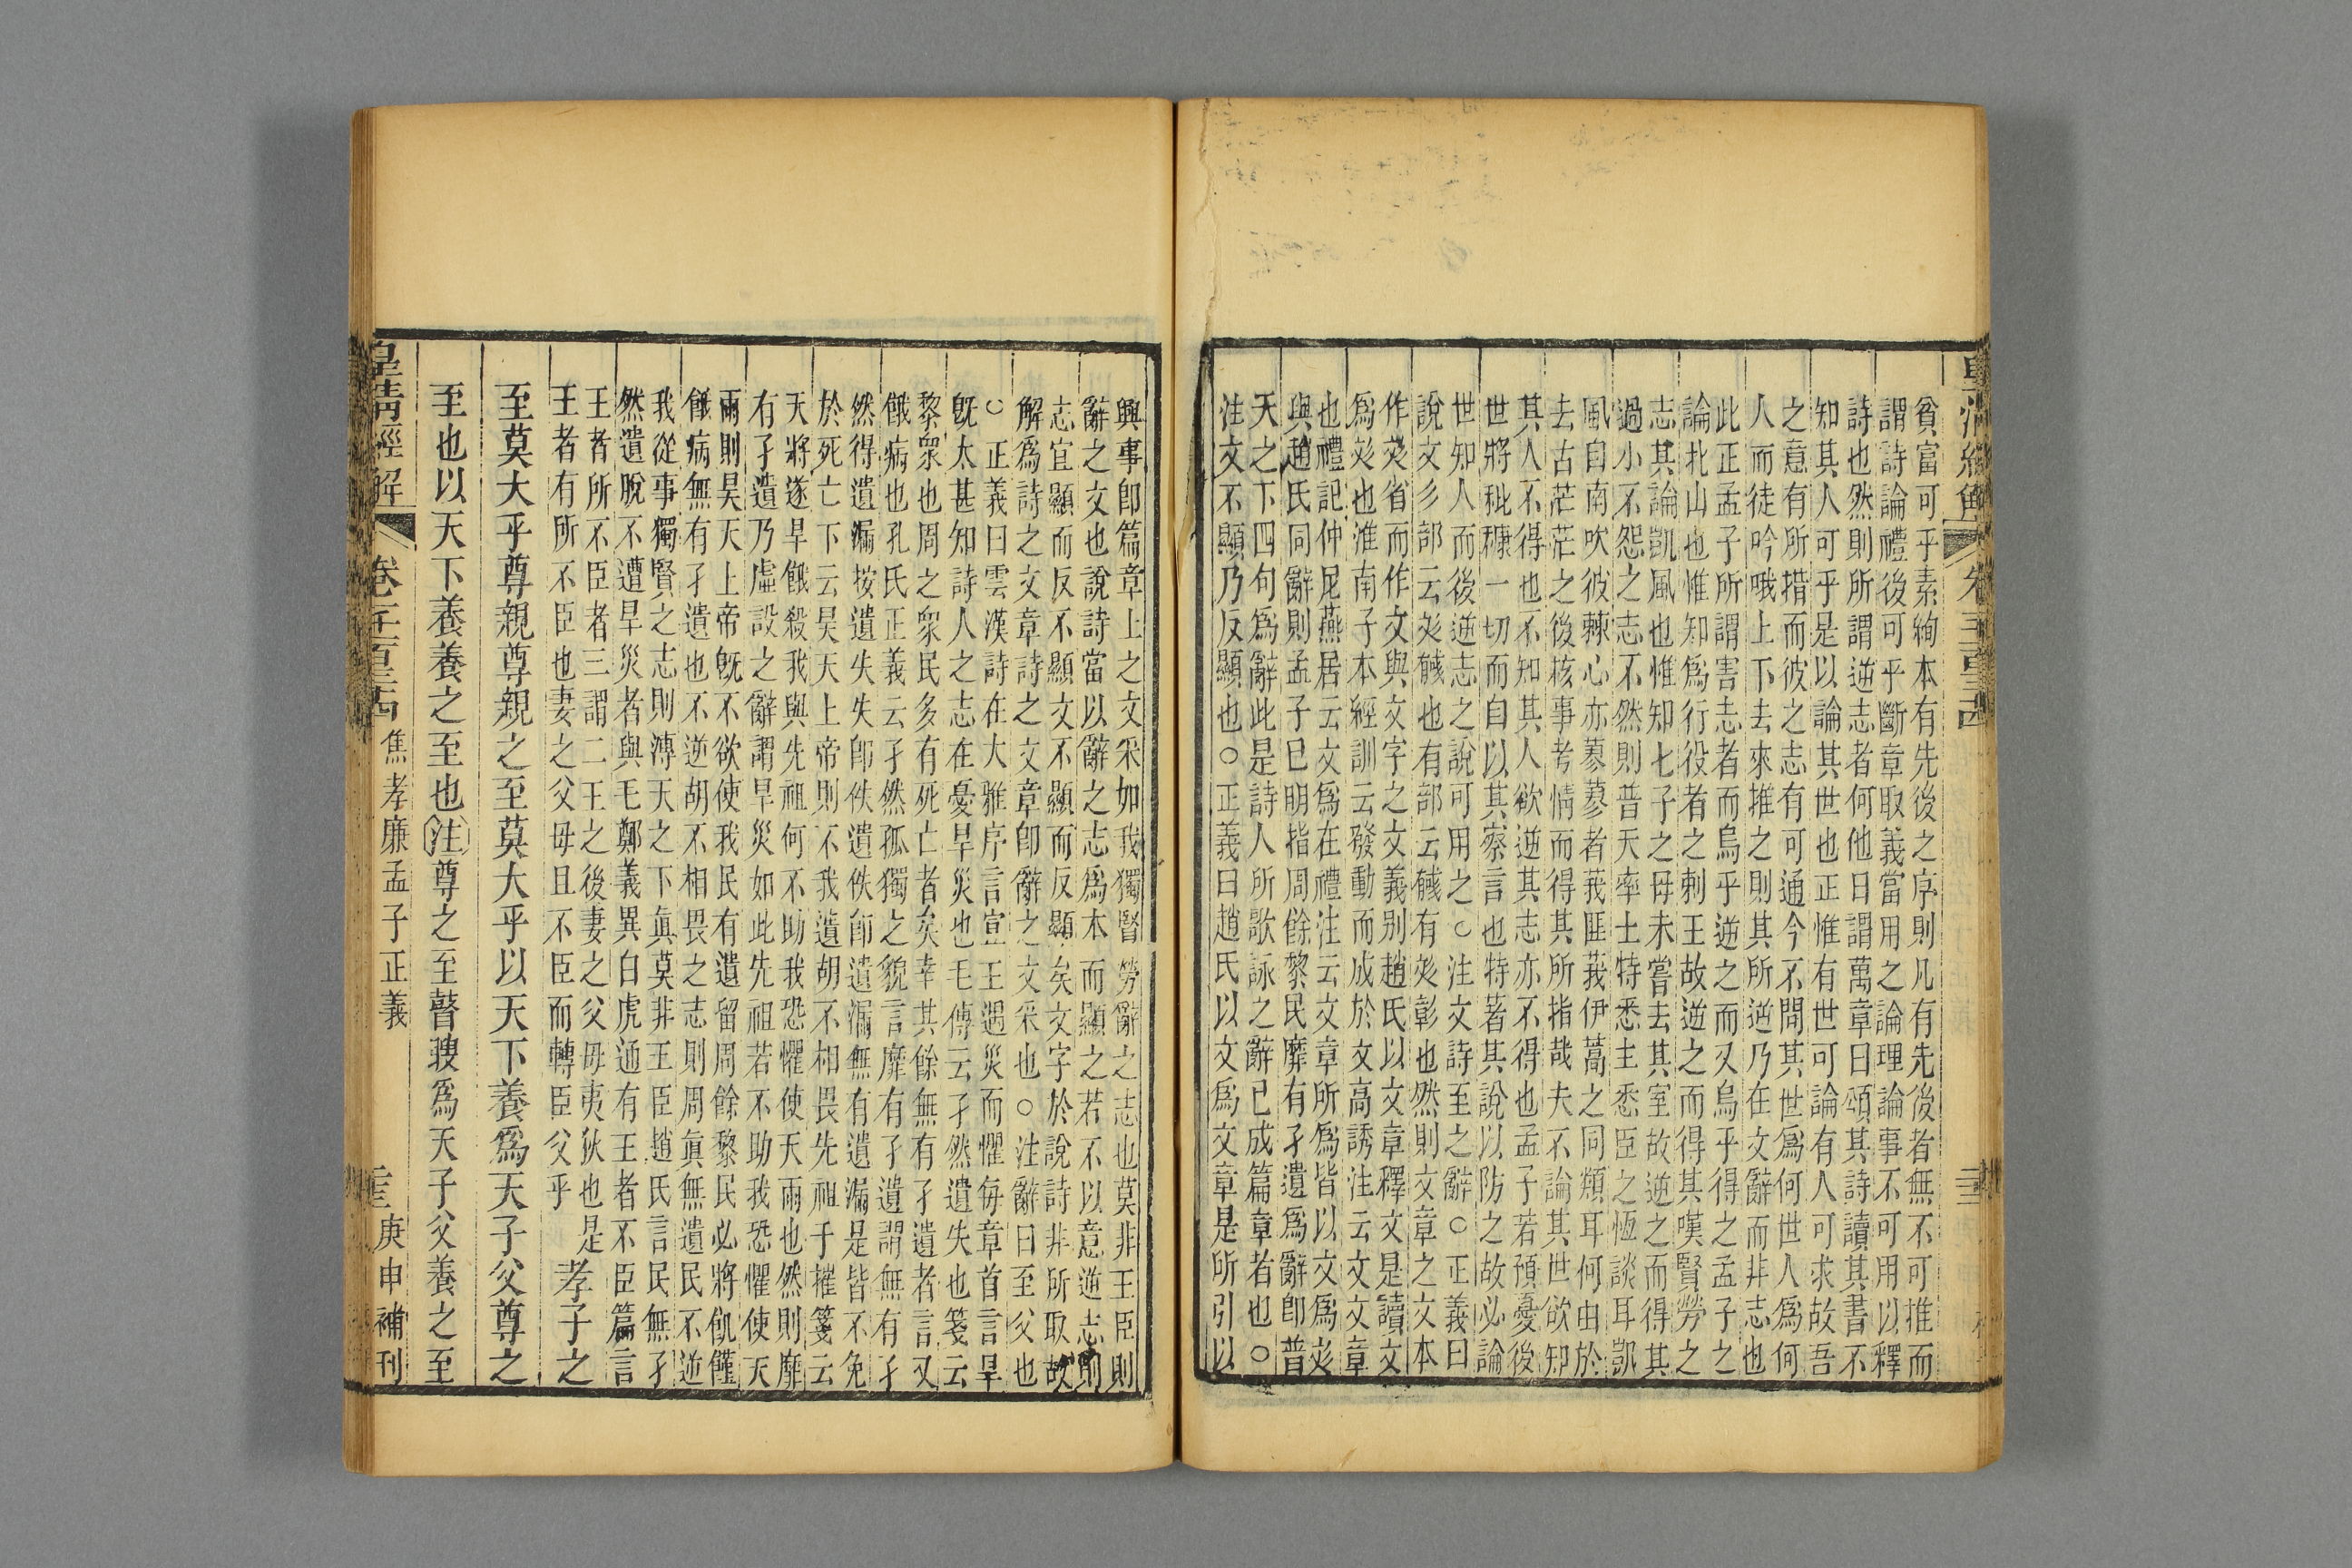 皇清經解
卷一千一百三十四
貧富可乎素絢本有先後之序則凡有先後者無不可推而
謂詩論禮後可乎斷章取義當用之論理論事不可用以釋
詩也然則所謂逆志者何他日謂萬章曰頌其詩讀其書不
知其人可乎是以論其世也正惟有世可論有人可求故吾
之意有所措而彼之志有可通今不問其世爲何世人爲何
人而徒吟哦上下去來推之則其所逆乃在文辭而非志也
此正孟子所謂害志者而烏乎逆之而又烏乎得之孟子之
論北山也惟知爲行役者之刺王故逆之而得其嘆賢勞之
志其論凱風也惟知七子之母未嘗去其室故逆之而得其
過小不怨之志不然則普天率土特悉主悉臣之恆談耳凱
風自南吹彼棘心亦蓼蓼者莪匪莪伊蒿之同類耳何由於
去古茫茫之後核事考情而得其所指哉夫不論其世欲知
其人不得也不知其人欲逆其志亦不得也孟子若預憂後
世將秕穅一切而自以其察言也特著其說以防之故必論
世知人而後逆志之說可用之○注文詩至之辭○正義曰
說文彡部云彣䤋也有部云䤋有彣彰也然則文章之文本
作彣省而作文與文字之文義別趙氏以文章釋文是讀文
爲彣也淮南子本經訓云發動而成於文高誘注云文文章
也禮記仲尼燕居云文爲在禮注云文章所爲皆以文爲彣
與趙氏同辭則孟子已明指周餘黎民靡有孑遺爲辭卽普
天之下四句爲辭此是詩人所歌詠之辭已成篇章者也○
注文不顯乃反顯也○正義曰趙氏以文爲文章是所引以
興事卽篇章上之文采如我獨賢勞辭之志也莫非王臣則
辭之文也說詩當以辭之志爲本而顯之若不以意逆志則
志宜顯而反不顯文不顯而反顯矣文字於說詩非所取故
解爲詩之文章詩之文章卽辭之文采也○注辭曰至父也
○正義曰雲漢詩在大雅序言宣王遇災而懼每章首言旱
旣太甚知詩人之志在憂旱災也毛傳云孑然遺失也箋云
黎衆也周之衆民多有死亡者矣幸其餘無有孑遺者言又
餓病也孔氏正義云孑然孤獨之貌言靡有孑遺謂無有孑
然得遺漏按遺失失卽佚遺佚卽遺漏無有遺漏是皆不免
於死亡下云昊天上帝則不我遺胡不相畏先祖于摧箋云
天將遂旱餓殺我與先祖何不助我恐懼使天雨也然則靡
有孑遺乃虛設之辭謂旱災如此先祖若不助我恐懼使天
雨則昊天上帝旣不欲使我民有遺留周餘黎民必將飢饉
餓病無有孑遺也不逆胡不相畏之志則周眞無遺民不逆
我從事獨賢之志則溥天之下眞莫非王臣趙氏言民無孑
然遺脫不遭旱災者與毛鄭義異白虎通有王者不臣篇言
王者所不臣者三謂二王之後妻之父母夷狄也是
王者有所不臣也妻之父母且不臣而轉臣父乎
孝子之
至莫大乎尊親尊親之至莫大乎以天下養爲天子父尊之
至也以天下養養之至也注尊之至瞽瞍爲天子父養之至
皇清經解
焦孝廉孟子正義
庚申補刊